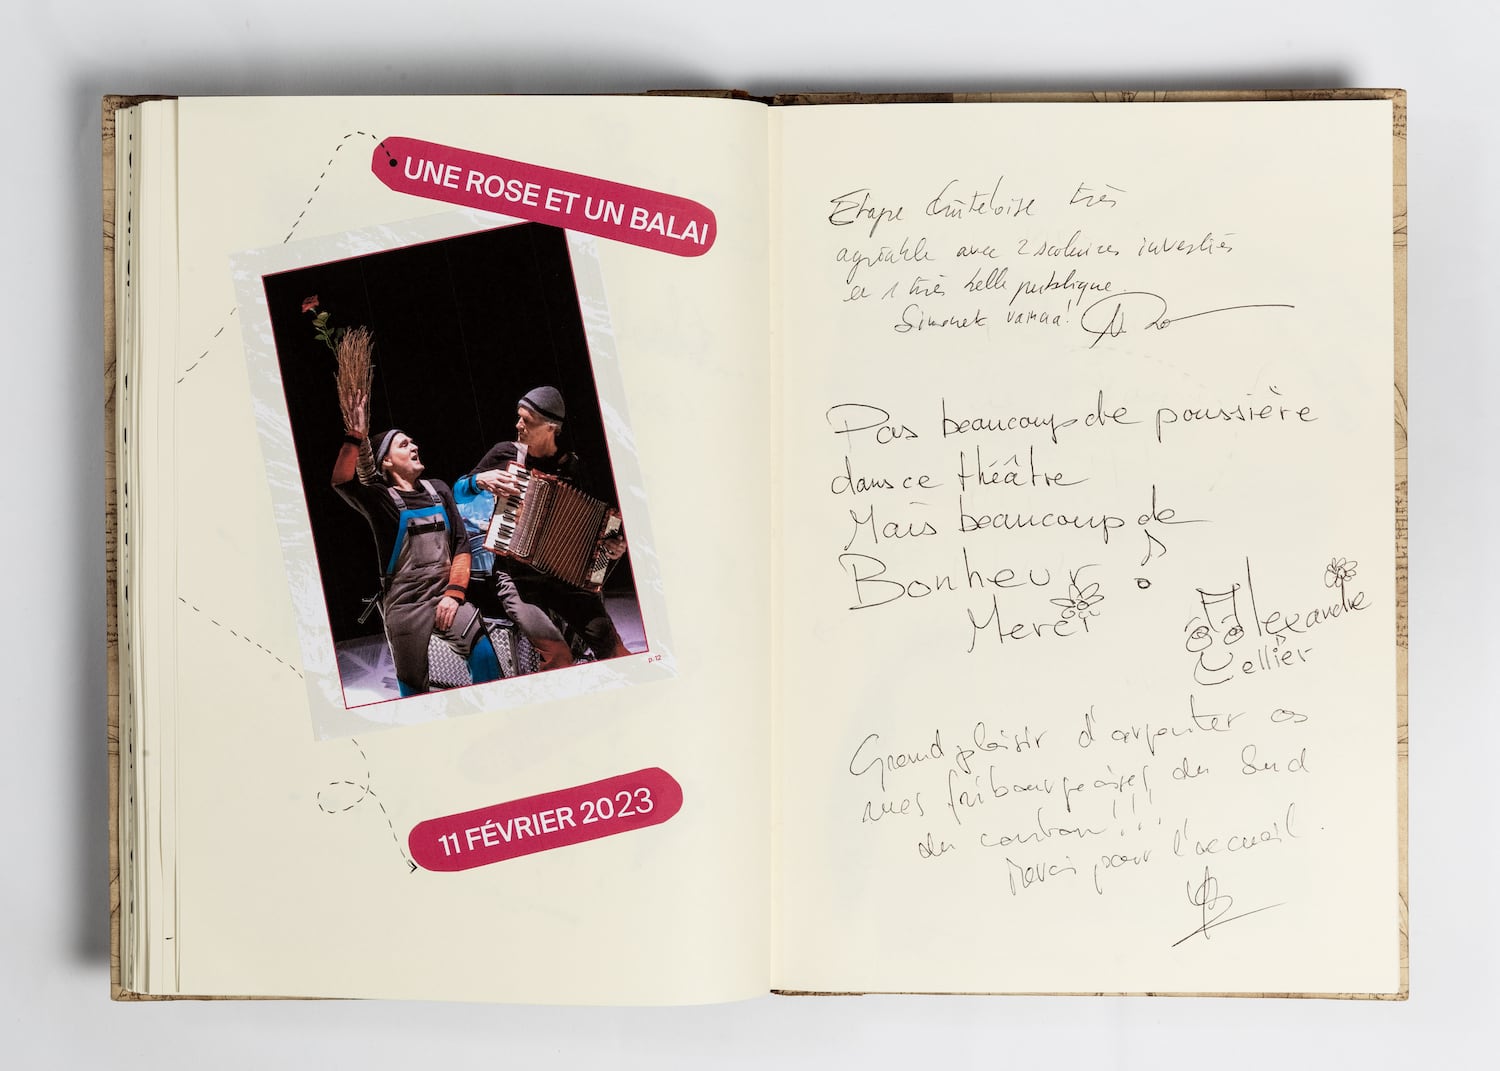 UNE ROSE ET UN BALAI
p. 12
11 FÉVRIER 2023
Etape très
agréable avec 2 scolaires investies
et 1 très belle publique.
Simonek
Pas beaucoup de poussière
dans ce théâtre
Mais beaucoup de
Bonheur !
Merci
Alexandre
Cellier
Grand plaisir d'arpenter ces
rues fribourgeoises du Sud
du canton !!!
Merci pour l'accueil.